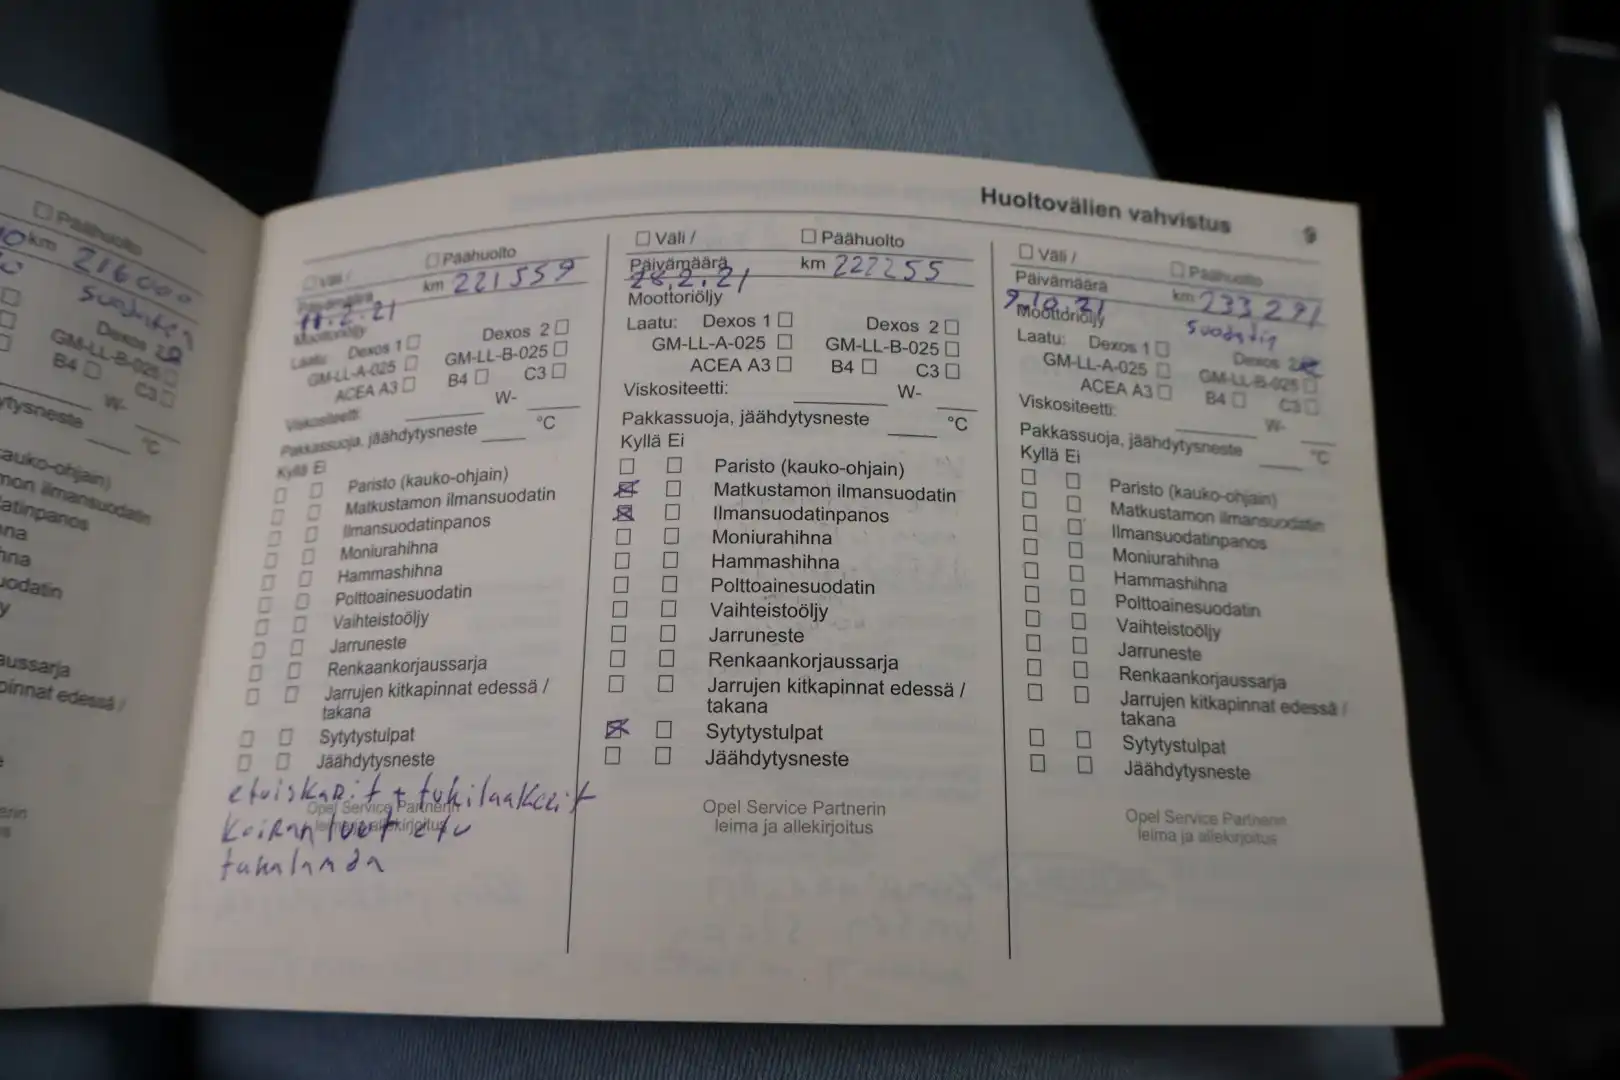 Päähuolto
km 216000
suodatin
Dexos 2
GM-LL-B-025
B4 C3
W-
ytysneste °C
auko-ohjain)
mon ilmansuodatin
atinpanos
na
hna
uodatin
y
aussarja
pinnat edessä /
Huoltovälien vahvistus 9
Väli / Päähuolto
Päivämäärä km 221559
11.2.21
Moottoriöljy
Laatu: Dexos 1 Dexos 2
GM-LL-A-025 GM-LL-B-025
ACEA A3 B4 C3
Viskositeetti: W-
Pakkassuoja, jäähdytysneste °C
Kyllä Ei
Paristo (kauko-ohjain)
Matkustamon ilmansuodatin
Ilmansuodatinpanos
Moniurahihna
Hammashihna
Polttoainesuodatin
Vaihteistoöljy
Jarruneste
Renkaankorjaussarja
Jarrujen kitkapinnat edessä /
takana
Sytytystulpat
Jäähdytysneste
etuiskarit + tukilaakerit
Opel Service Partnerin
koiranluut etu
leima ja allekirjoitus
Väli / Päähuolto
Päivämäärä km 222255
28.2.21
Moottoriöljy
Laatu: Dexos 1 Dexos 2
GM-LL-A-025 GM-LL-B-025
ACEA A3 B4 C3
Viskositeetti: W-
Pakkassuoja, jäähdytysneste °C
Kyllä Ei
Paristo (kauko-ohjain)
Matkustamon ilmansuodatin
Ilmansuodatinpanos
Moniurahihna
Hammashihna
Polttoainesuodatin
Vaihteistoöljy
Jarruneste
Renkaankorjaussarja
Jarrujen kitkapinnat edessä /
takana
Sytytystulpat
Jäähdytysneste
Opel Service Partnerin
leima ja allekirjoitus
Väli / Päähuolto
Päivämäärä km 233291
9.10.21
Moottoriöljy suodatin
Laatu: Dexos 1 Dexos 2
GM-LL-A-025 GM-LL-B-025
ACEA A3 B4 C3
Viskositeetti: W-
Pakkassuoja, jäähdytysneste °C
Kyllä Ei
Paristo (kauko-ohjain)
Matkustamon ilmansuodatin
Ilmansuodatinpanos
Moniurahihna
Hammashihna
Polttoainesuodatin
Vaihteistoöljy
Jarruneste
Renkaankorjaussarja
Jarrujen kitkapinnat edessä /
takana
Sytytystulpat
Jäähdytysneste
Opel Service Partnerin
leima ja allekirjoitus